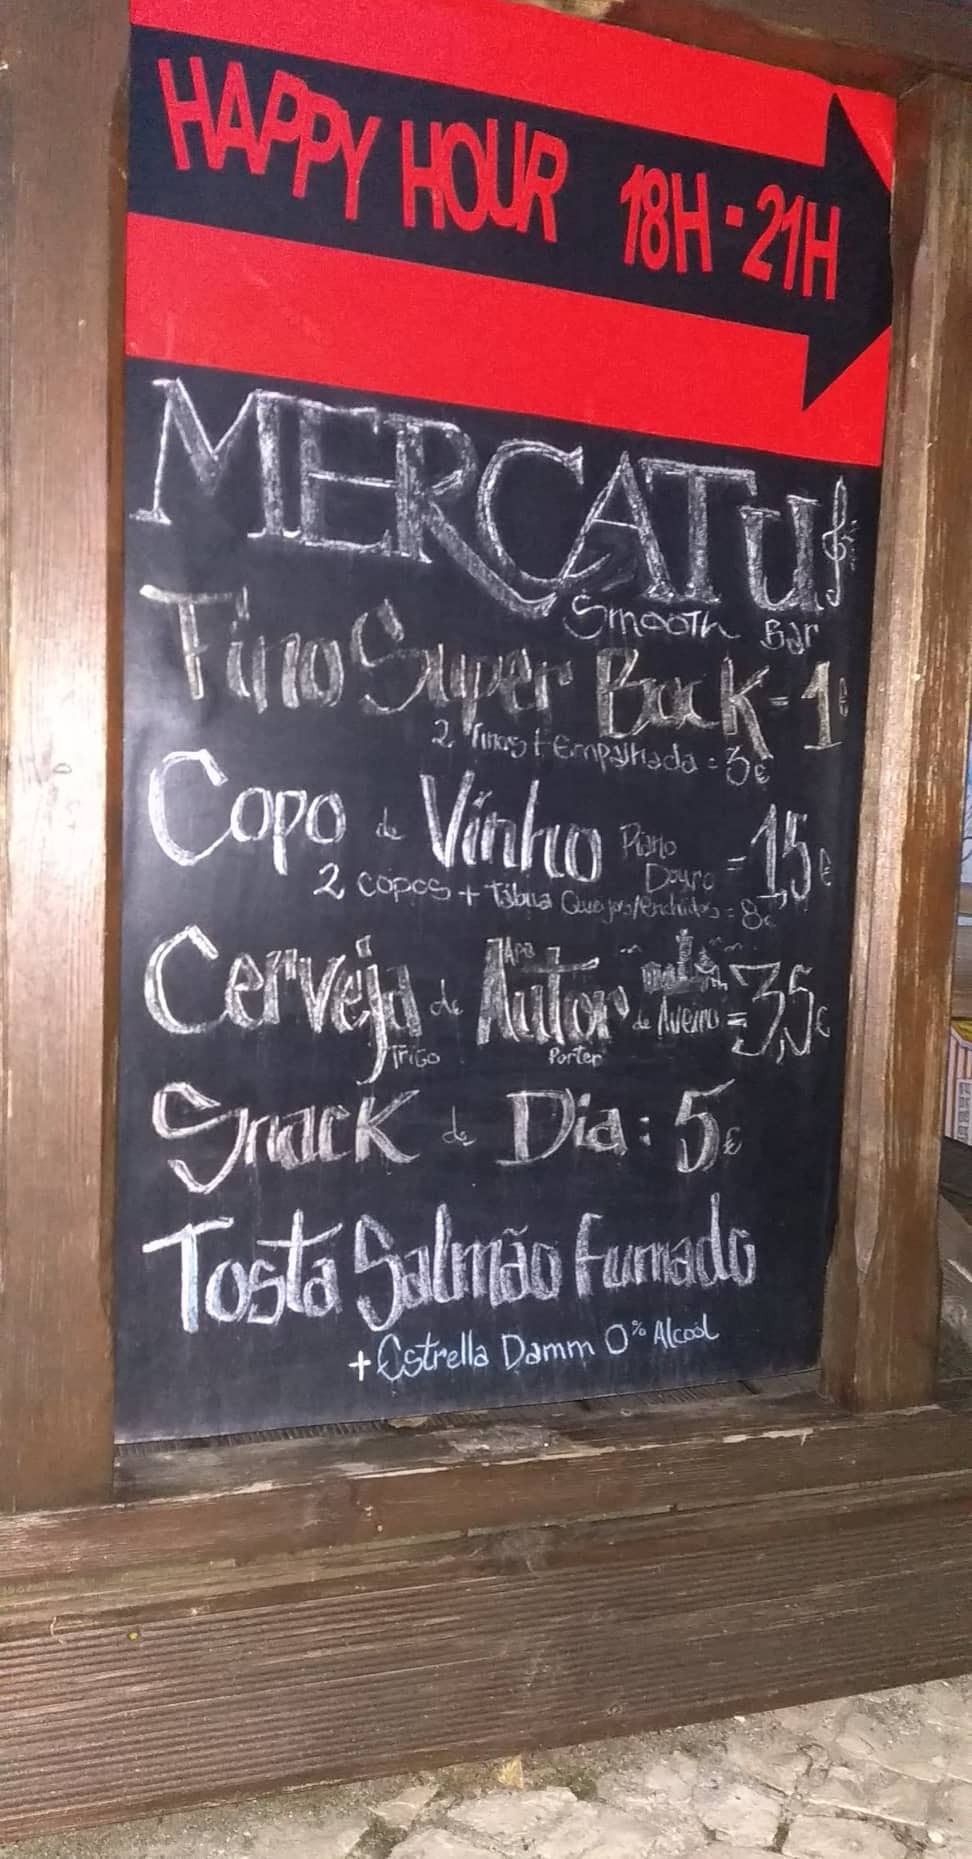 HAPPY HOUR 18H-21H
MERCATU
Smooth Bar
Fino Super Bock - 1€
2 Finos + Empalhada = 3€
Copo de Vinho Piano Douro = 1,5€
2 copos + Tábua Queijos/Enchidos = 8€
Cerveja de Autor de Aveiro = 3,5€
Trigo Porter
Snack do Dia: 5€
Tosta Salmão Fumado
+ Estrella Damm 0% Alcool